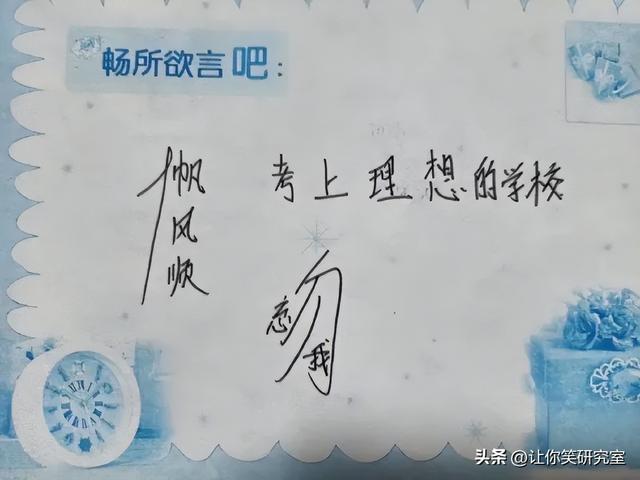 畅所欲言吧：
一帆风顺
考上理想的学校
勿忘我
头条 @让你笑研究室